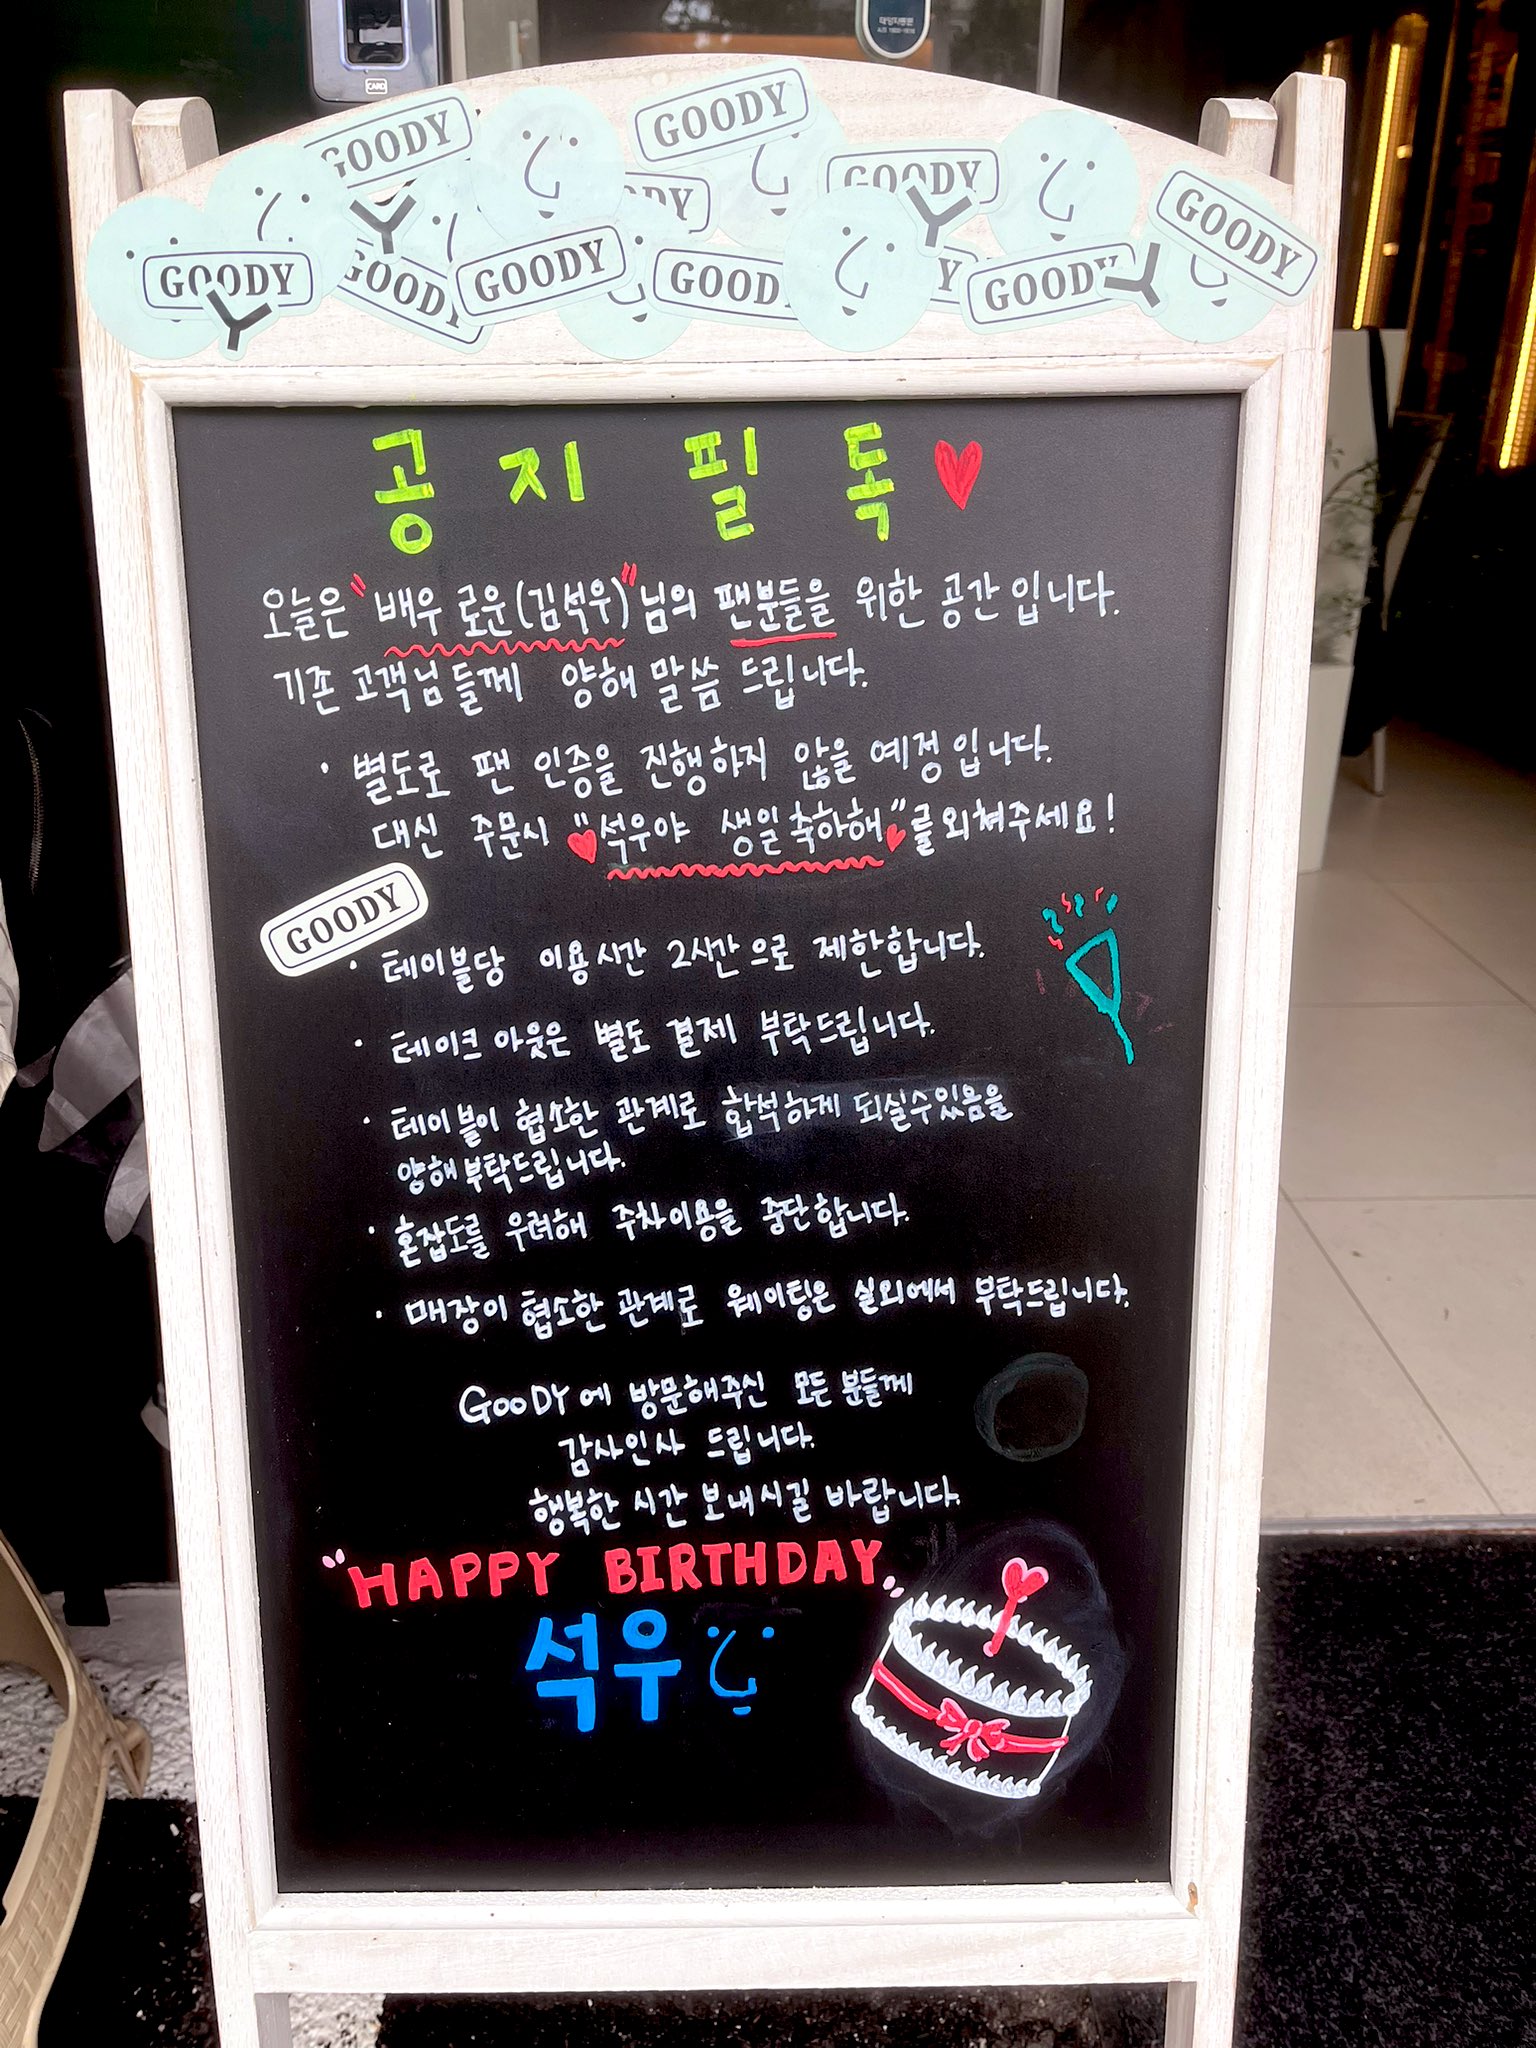 CARD
GOODY
GOODY
GOODY
GOODY
GOODY
GOODY
GOODY
GOODY
GOODY
공지 필독
오늘은 "배우 로운(김석우)"님의 팬분들을 위한 공간입니다.
기존 고객님들께 양해 말씀 드립니다.
· 별도로 팬 인증을 진행하지 않을 예정입니다.
대신 주문시 "석우야 생일축하해"를 외쳐주세요!
GOODY
· 테이블당 이용시간 2시간으로 제한합니다.
· 테이크 아웃은 별도 결제 부탁드립니다.
· 테이블이 협소한 관계로 합석하게 되실수있음을
양해부탁드립니다.
· 혼잡도를 우려해 주차이용을 중단합니다.
· 매장이 협소한 관계로 웨이팅은 실외에서 부탁드립니다.
GooDY에 방문해주신 모든 분들께
감사인사 드립니다.
행복한 시간 보내시길 바랍니다.
"HAPPY BIRTHDAY"
석우